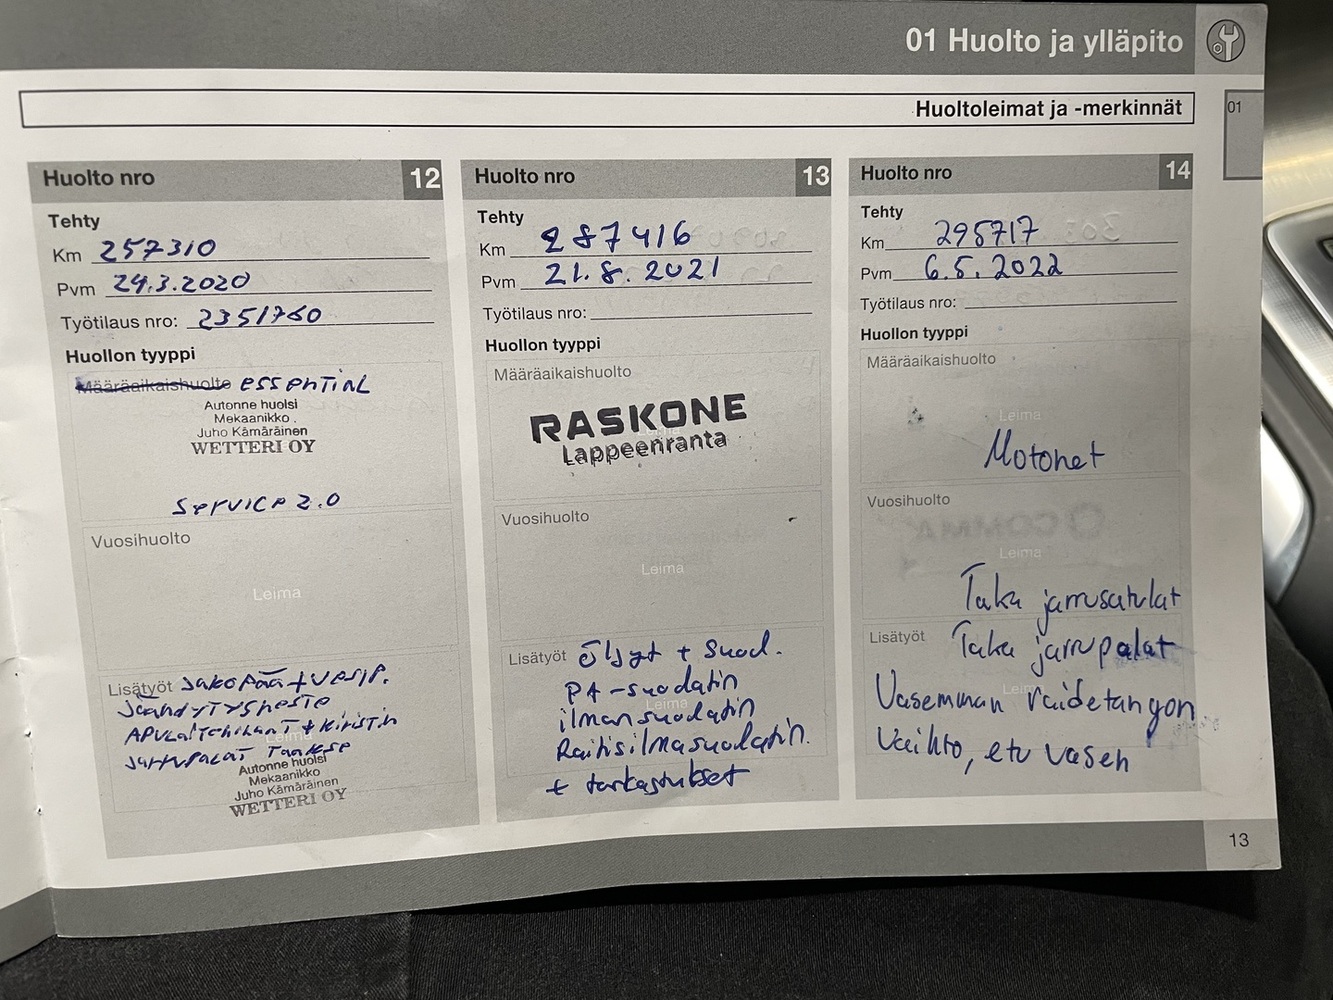 01 Huolto ja ylläpito
Huoltoleimat ja -merkinnät
01
Huolto nro 12
Tehty
Km 257310
Pvm 24.3.2020
Työtilaus nro: 2351760
Huollon tyyppi
Määräaikaishuolto ESSENTIAL
Autonne huolsi
Mekaanikko
Juho Kämäräinen
WETTERI OY
Service 2.0
Vuosihuolto
Leima
Lisätyöt Jakopää + vesip.
Jäähdytysneste
Apulaitehihnat + kiristin
Jarrupalat Taakse
Leima
Autonne huolsi
Mekaanikko
Juho Kämäräinen
WETTERI OY
Huolto nro 13
Tehty
Km 287416
Pvm 21.8.2021
Työtilaus nro:
Huollon tyyppi
Määräaikaishuolto
RASKONE
Lappeenranta
Vuosihuolto
Leima
Lisätyöt Öljyt + Suod.
PA-suodatin
Leima
ilmansuodatin
Raitisilmasuodatin.
+ tarkastukset
Huolto nro 14
Tehty
Km 295717
Pvm 6.5.2022
Työtilaus nro:
Huollon tyyppi
Määräaikaishuolto
Leima
Motonet
Vuosihuolto
Leima
Taka jarrusatulat
Lisätyöt Taka jarrupalat
Leima
Vasemman raidetangon
Vaihto, etu vasen
13